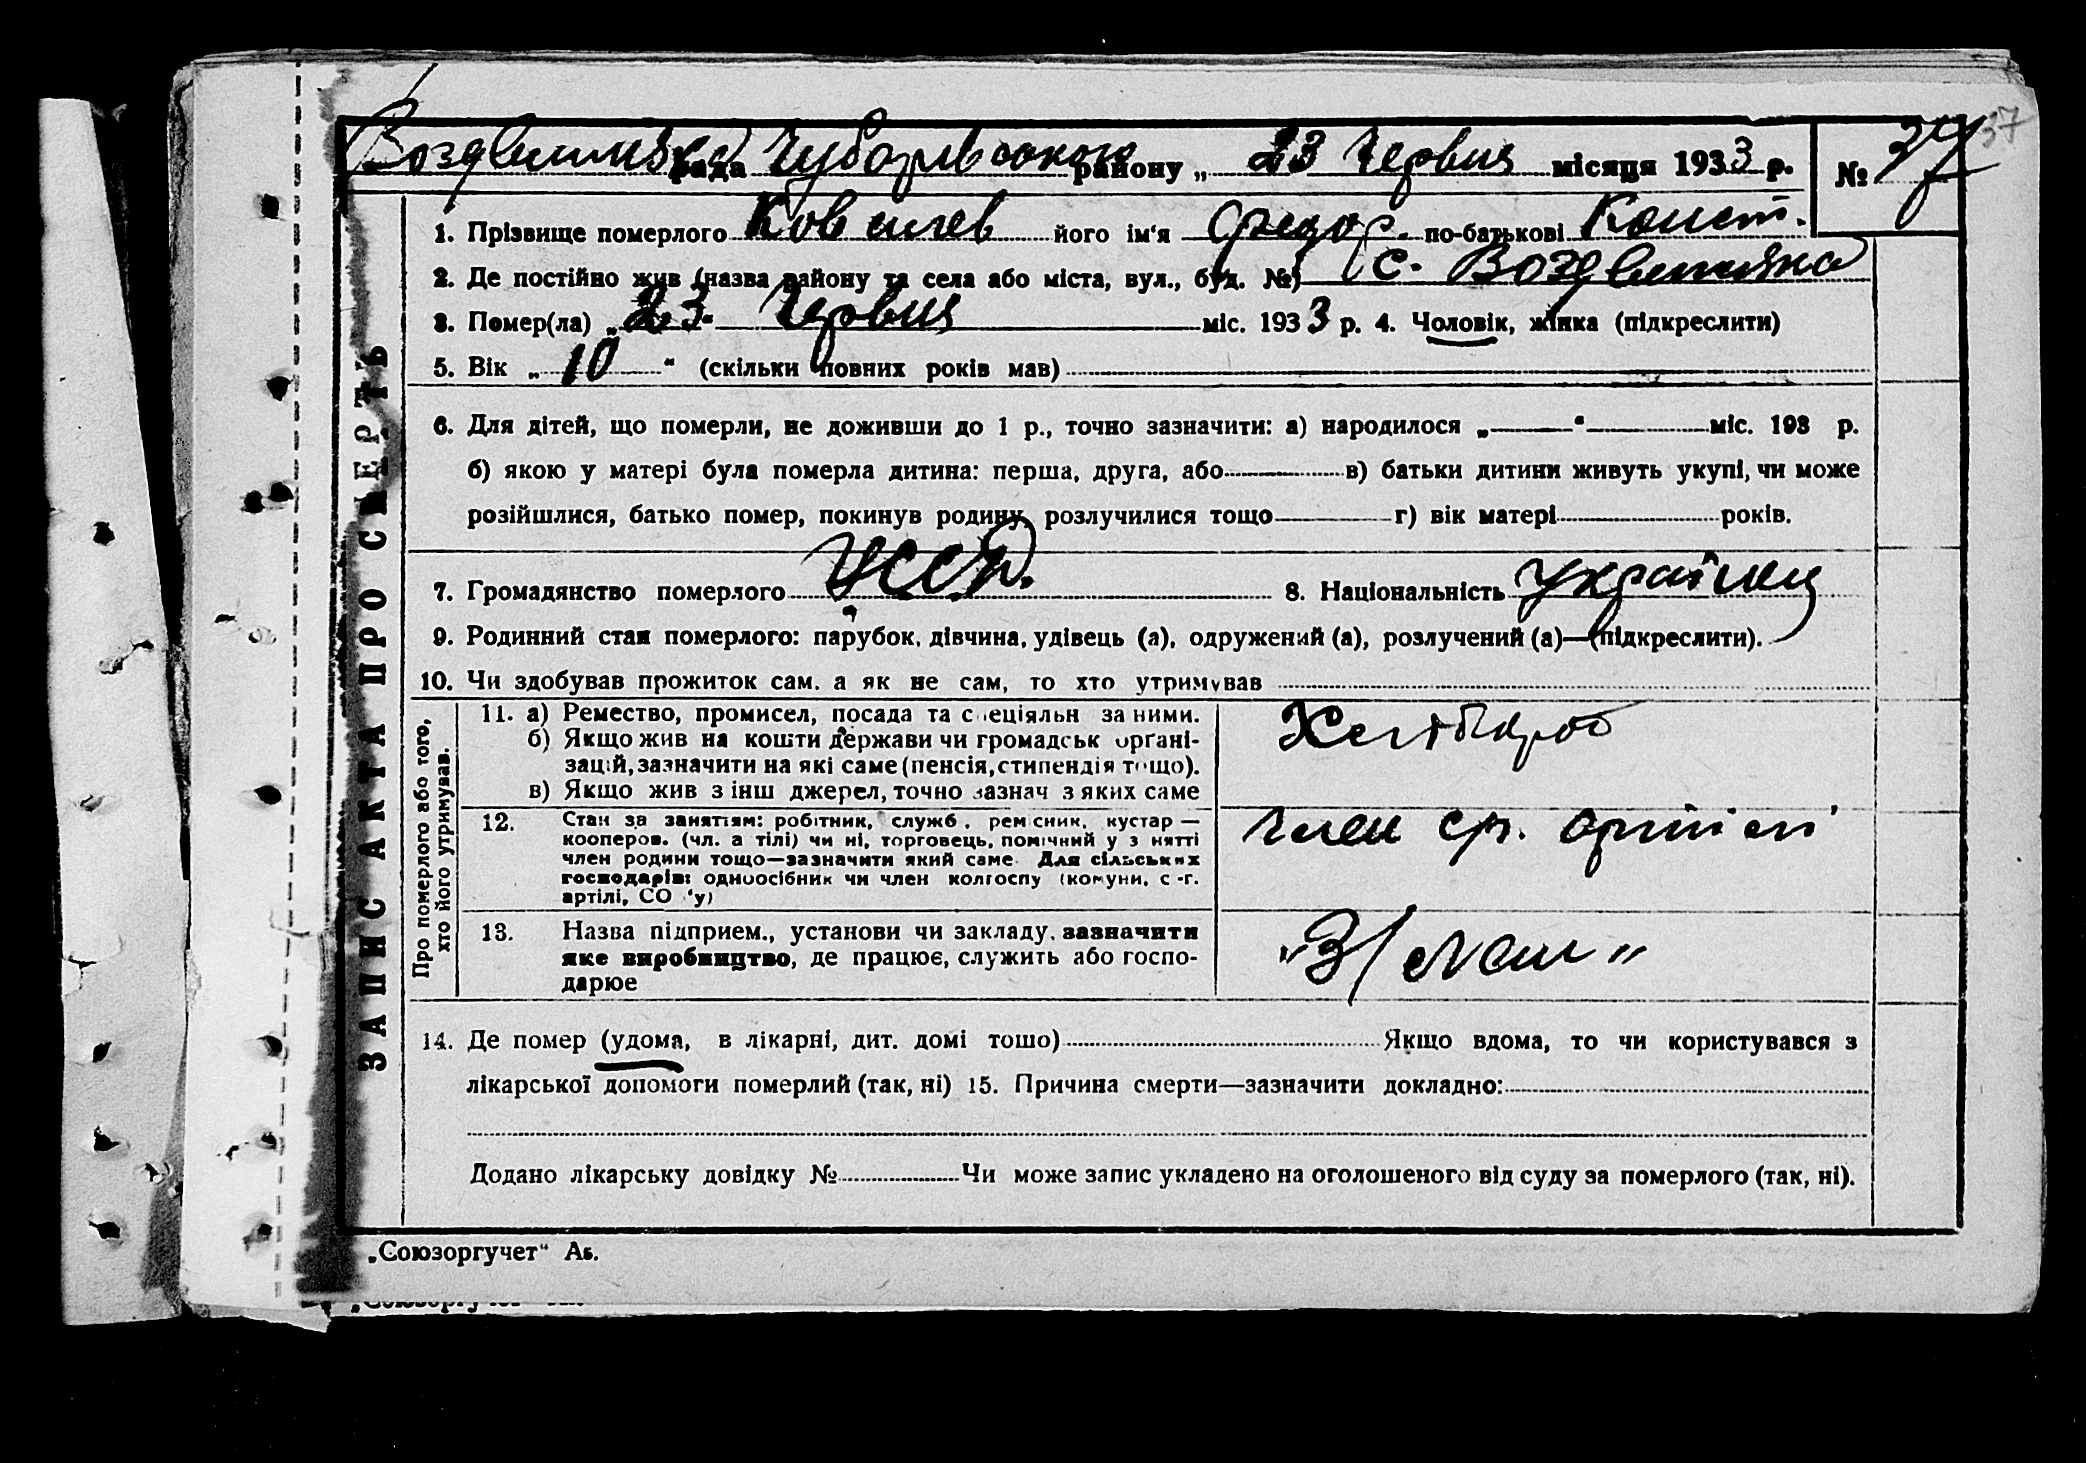 37
рада Чубарівського району „ 23 Червня місяця 1933 р. № 37
1. Прізвище померлого його ім'я Федор. по-батькові Конст.
2. Де постійно жив (назва району та села або міста, вул., буд. №) с.
3. Помер(ла) „ 23 “ Червня міс. 1933 р. 4. Чоловік, жінка (підкреслити)
5. Вік „ 10 “ (скільки повних років мав)
6. Для дітей, що померли, не доживши до 1 р., точно зазначити: а) народилося „ “ міс. 193 р.
б) якою у матері була померла дитина: перша, друга, або в) батьки дитини живуть укупі, чи може
розійшлися, батько помер, покинув родину, розлучилися тощо г) вік матері років.
7. Громадянство померлого УССР. 8. Національність українец
9. Родинний стан померлого: парубок, дівчина, удівець (а), одружений (а), розлучений (а)—(підкреслити).
10. Чи здобував прожиток сам, а як не сам, то хто утримував
ЗАПИС АКТА ПРО СМЕРТЬ
Про померлого або того,
хто його утримував.
11. а) Ремество, промисел, посада та спеціяльн за ними.
б) Якщо жив на кошти держави чи громадськ органі-
зацій, зазначити на які саме (пенсія, стипендія тощо).
в) Якщо жив з інш джерел, точно зазнач з яких саме
Хлібороб
12. Стан за заняттям: робітник, служб., ремісник, кустар —
кооперов. (чл. артілі) чи ні, торговець, помічний у занятті
член родини тощо—зазначити який саме. Для сільських
господарів: одноосібник чи член колгоспу (комуни, с.-г.
артілі, СОЗ'у)
член артілі
13. Назва підприєм., установи чи закладу, зазначити
яке виробництво, де працює, служить або господарює
14. Де помер (удома, в лікарні, дит. домі тощо) Якщо вдома, то чи користувався з
лікарської допомоги померлий (так, ні) 15. Причина смерти—зазначити докладно:
Додано лікарську довідку № Чи може запис укладено на оголошеного від суду за померлого (так, ні).
„Союзоргучет“ Аб.